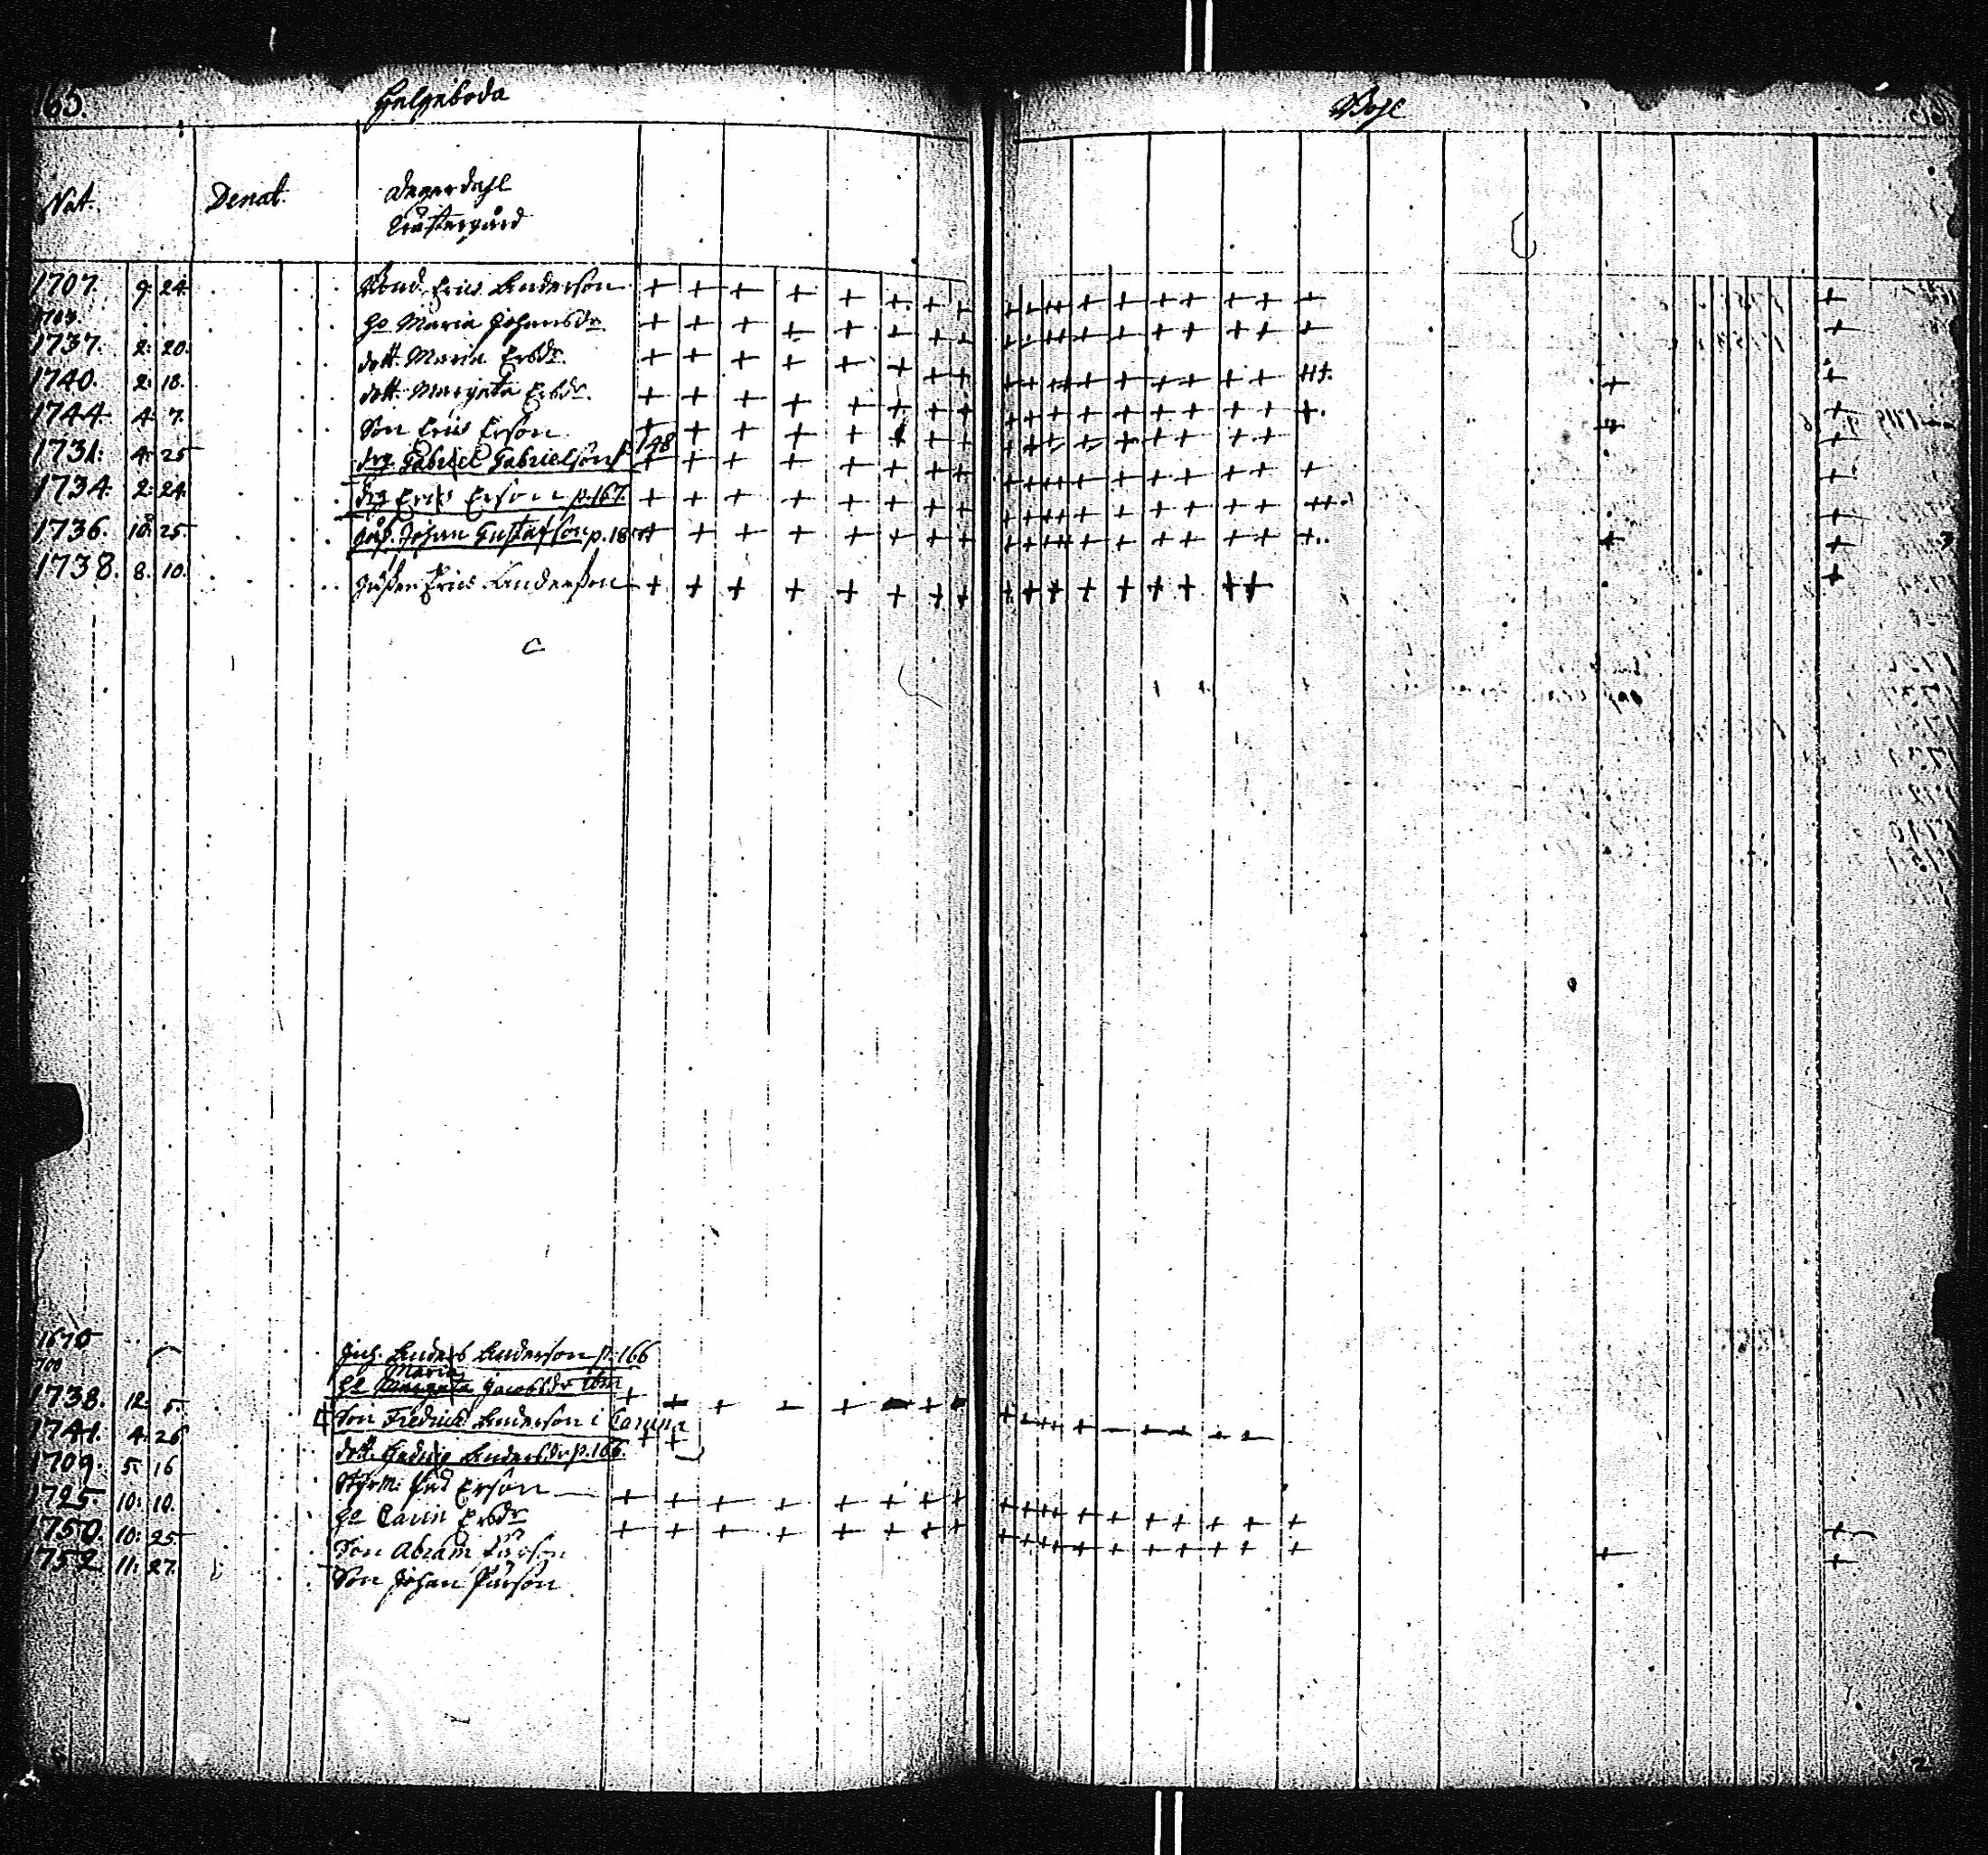 165.
Helgeboda
Böhle
Nat.
Denat.
Dagerdahl
Wästergård
1707. 9: 24. Bond. Eric Anderson
1703. H:o Maria Johansdr
1737. 2: 20. dott. Maria Ersdr.
1740. 2: 18. dott. Margeta Ersdr.
1744. 4: 7. Son Eric Erson
1731. 4: 25 drg. Gabriel Gabrielson p. 148
1734. 2: 24. drg Eric Erson p. 167.
1736. 10: 25. Johan Gustafson p. 18
1738. 8. 10. Eric Anderson
1670 Inh. Anders Anderson p. 166
700 Maria
H:o Margeta Jacobsdr ibm
1738. 12. 5. Son Fredric Anderson i Caruna
1741. 4. 26 dott. Hedvig Andersdr p. 166.
1709. 5. 16 Påhl Erson
1725. 10: 10. H:o Carin Ersdr
1750. 10: 25. Son Abram
1752. 11: 27. Son Johan